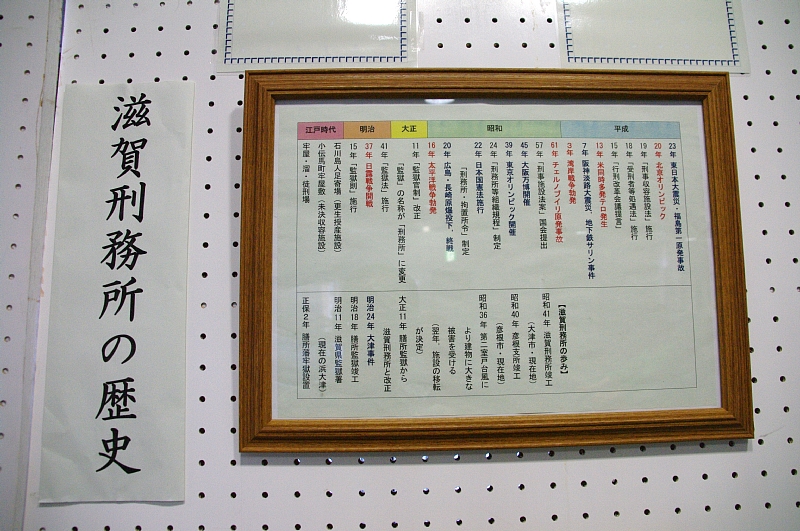 滋賀刑務所の歴史
平成
昭和
大正
明治
江戸時代
23年 東日本大震災・福島第一原発事故
20年 北京オリンピック
19年 「刑事収容施設法」施行
18年 「受刑者等処遇法」施行
15年 「行刑改革会議提言」
13年 米同時多発テロ発生
7年 阪神淡路大震災、地下鉄サリン事件
3年 湾岸戦争勃発
61年 チェルノブイリ原発事故
57年 「刑事施設法案」国会提出
45年 大阪万博開催
39年 東京オリンピック開催
24年 「刑務所等組織規程」制定
22年 日本国憲法施行
「刑務所・拘置所令」制定
20年 広島・長崎原爆投下、終戦
16年 太平洋戦争勃発
11年 「監獄官制」改正
「監獄」の名称が「刑務所」に変更
41年 「監獄法」施行
37年 日露戦争開戦
15年 「監獄則」施行
石川島人足寄場（更生授産施設）
小伝馬町牢屋敷（未決収容施設）
牢屋・溜・徒刑場
【滋賀刑務所の歩み】
昭和41年 滋賀刑務所竣工
（大津市・現在地）
昭和40年 彦根支所竣工
（彦根市・現在地）
昭和36年 第二室戸台風に
より建物に大きな
被害を受ける
（翌年、施設の移転
が決定）
大正11年 膳所監獄から
滋賀刑務所と改正
明治24年 大津事件
明治18年 膳所監獄竣工
明治11年 滋賀県監獄署
（現在の浜大津）
正保2年 膳所藩牢獄設置